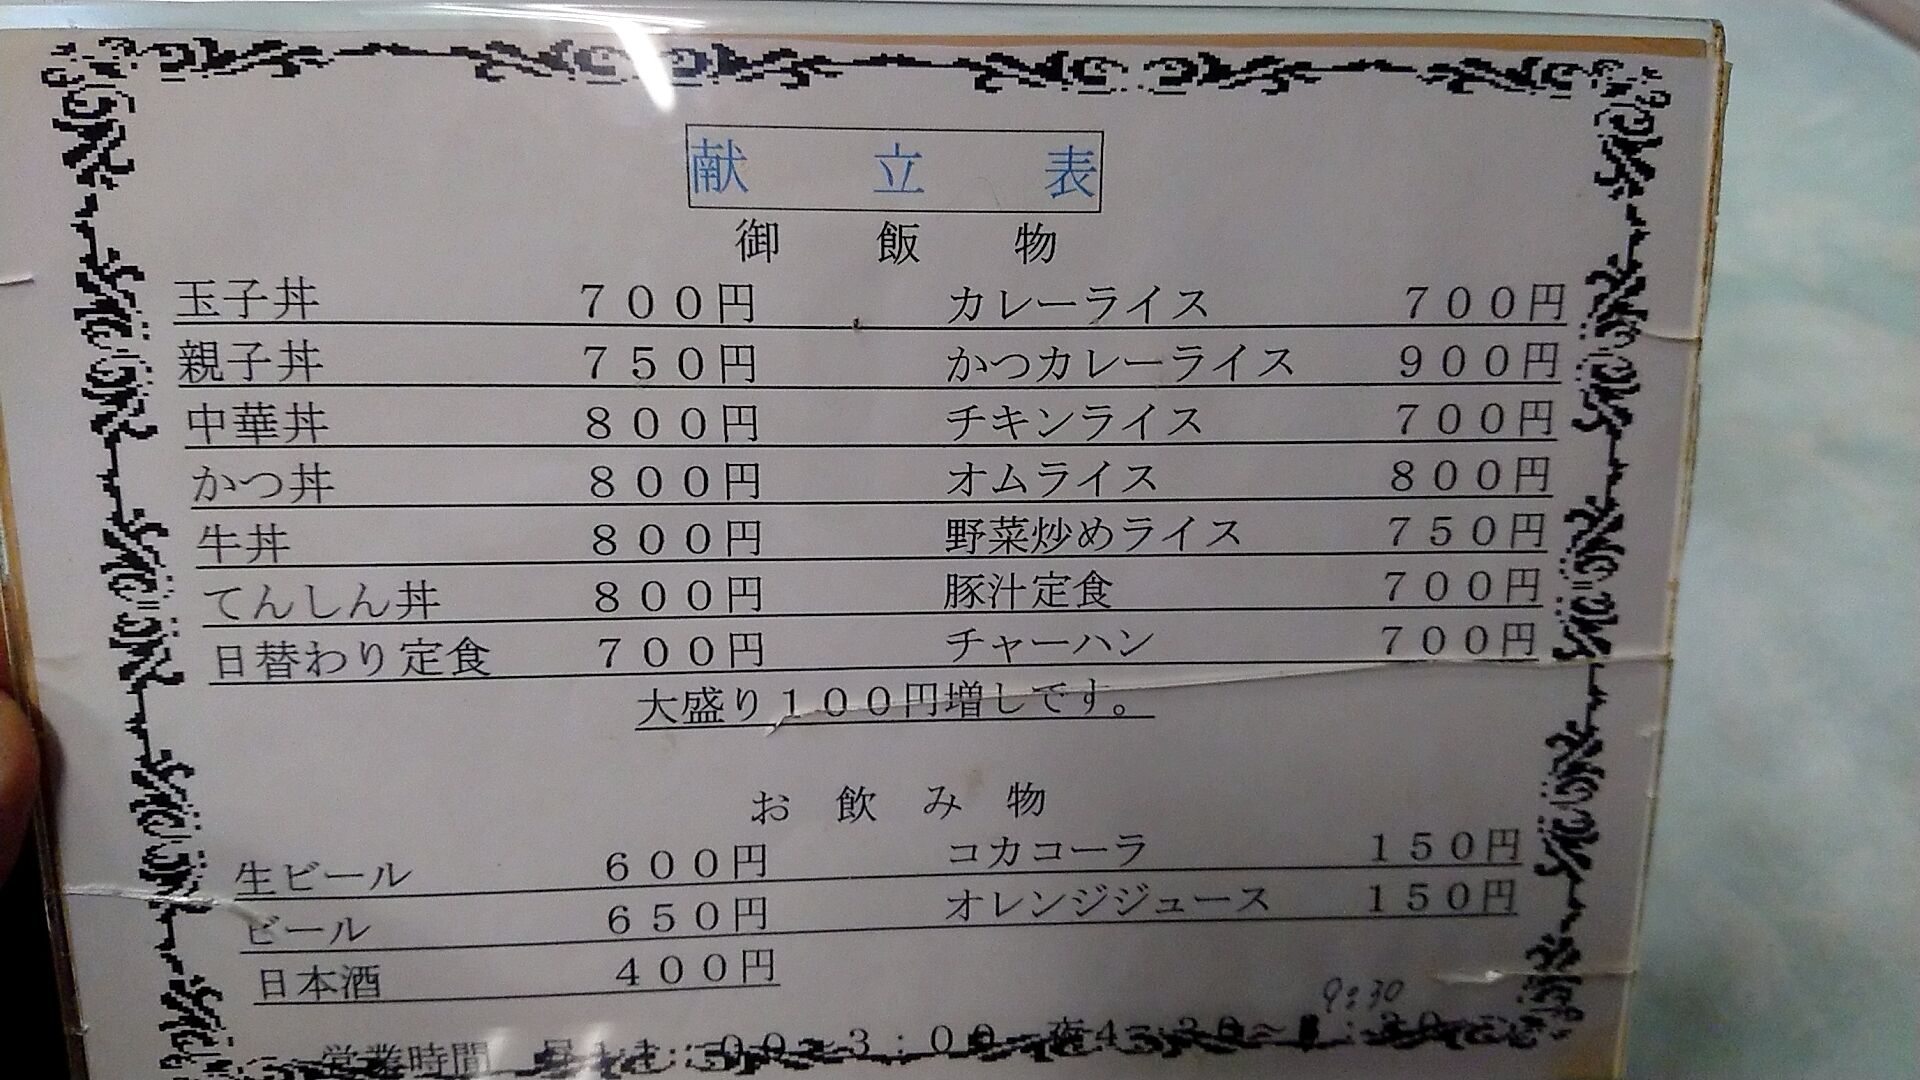 献立表
御飯物
玉子丼 700円 カレーライス 700円
親子丼 750円 かつカレーライス 900円
中華丼 800円 チキンライス 700円
かつ丼 800円 オムライス 800円
牛丼 800円 野菜炒めライス 750円
てんしん丼 800円 豚汁定食 700円
日替わり定食 700円 チャーハン 700円
大盛り100円増しです。
お飲み物
生ビール 600円 コカコーラ 150円
ビール 650円 オレンジジュース 150円
日本酒 400円
9:30
営業時間 3:00 夜4